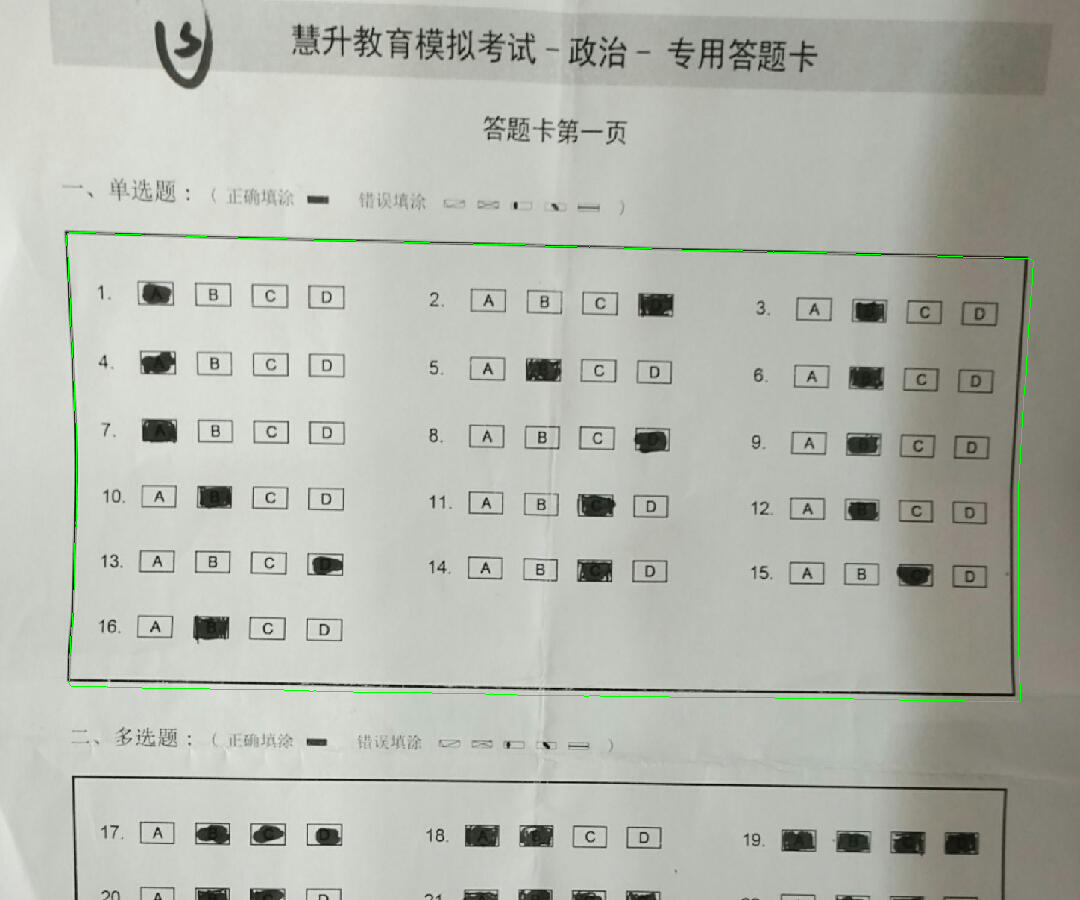 慧升教育模拟考试-政治- 专用答题卡
答题卡第一页
一、单选题：（ 正确填涂 错误填涂 ）
1. A B C D 2. A B C D 3. A B C D
4. A B C D 5. A B C D 6. A B C D
7. A B C D 8. A B C D 9. A B C D
10. A B C D 11. A B C D 12. A B C D
13. A B C D 14. A B C D 15. A B C D
16. A B C D
二、多选题：（ 正确填涂 错误填涂 ）
17. A B C D 18. A B C D 19. A B C D
20 A B C D 21